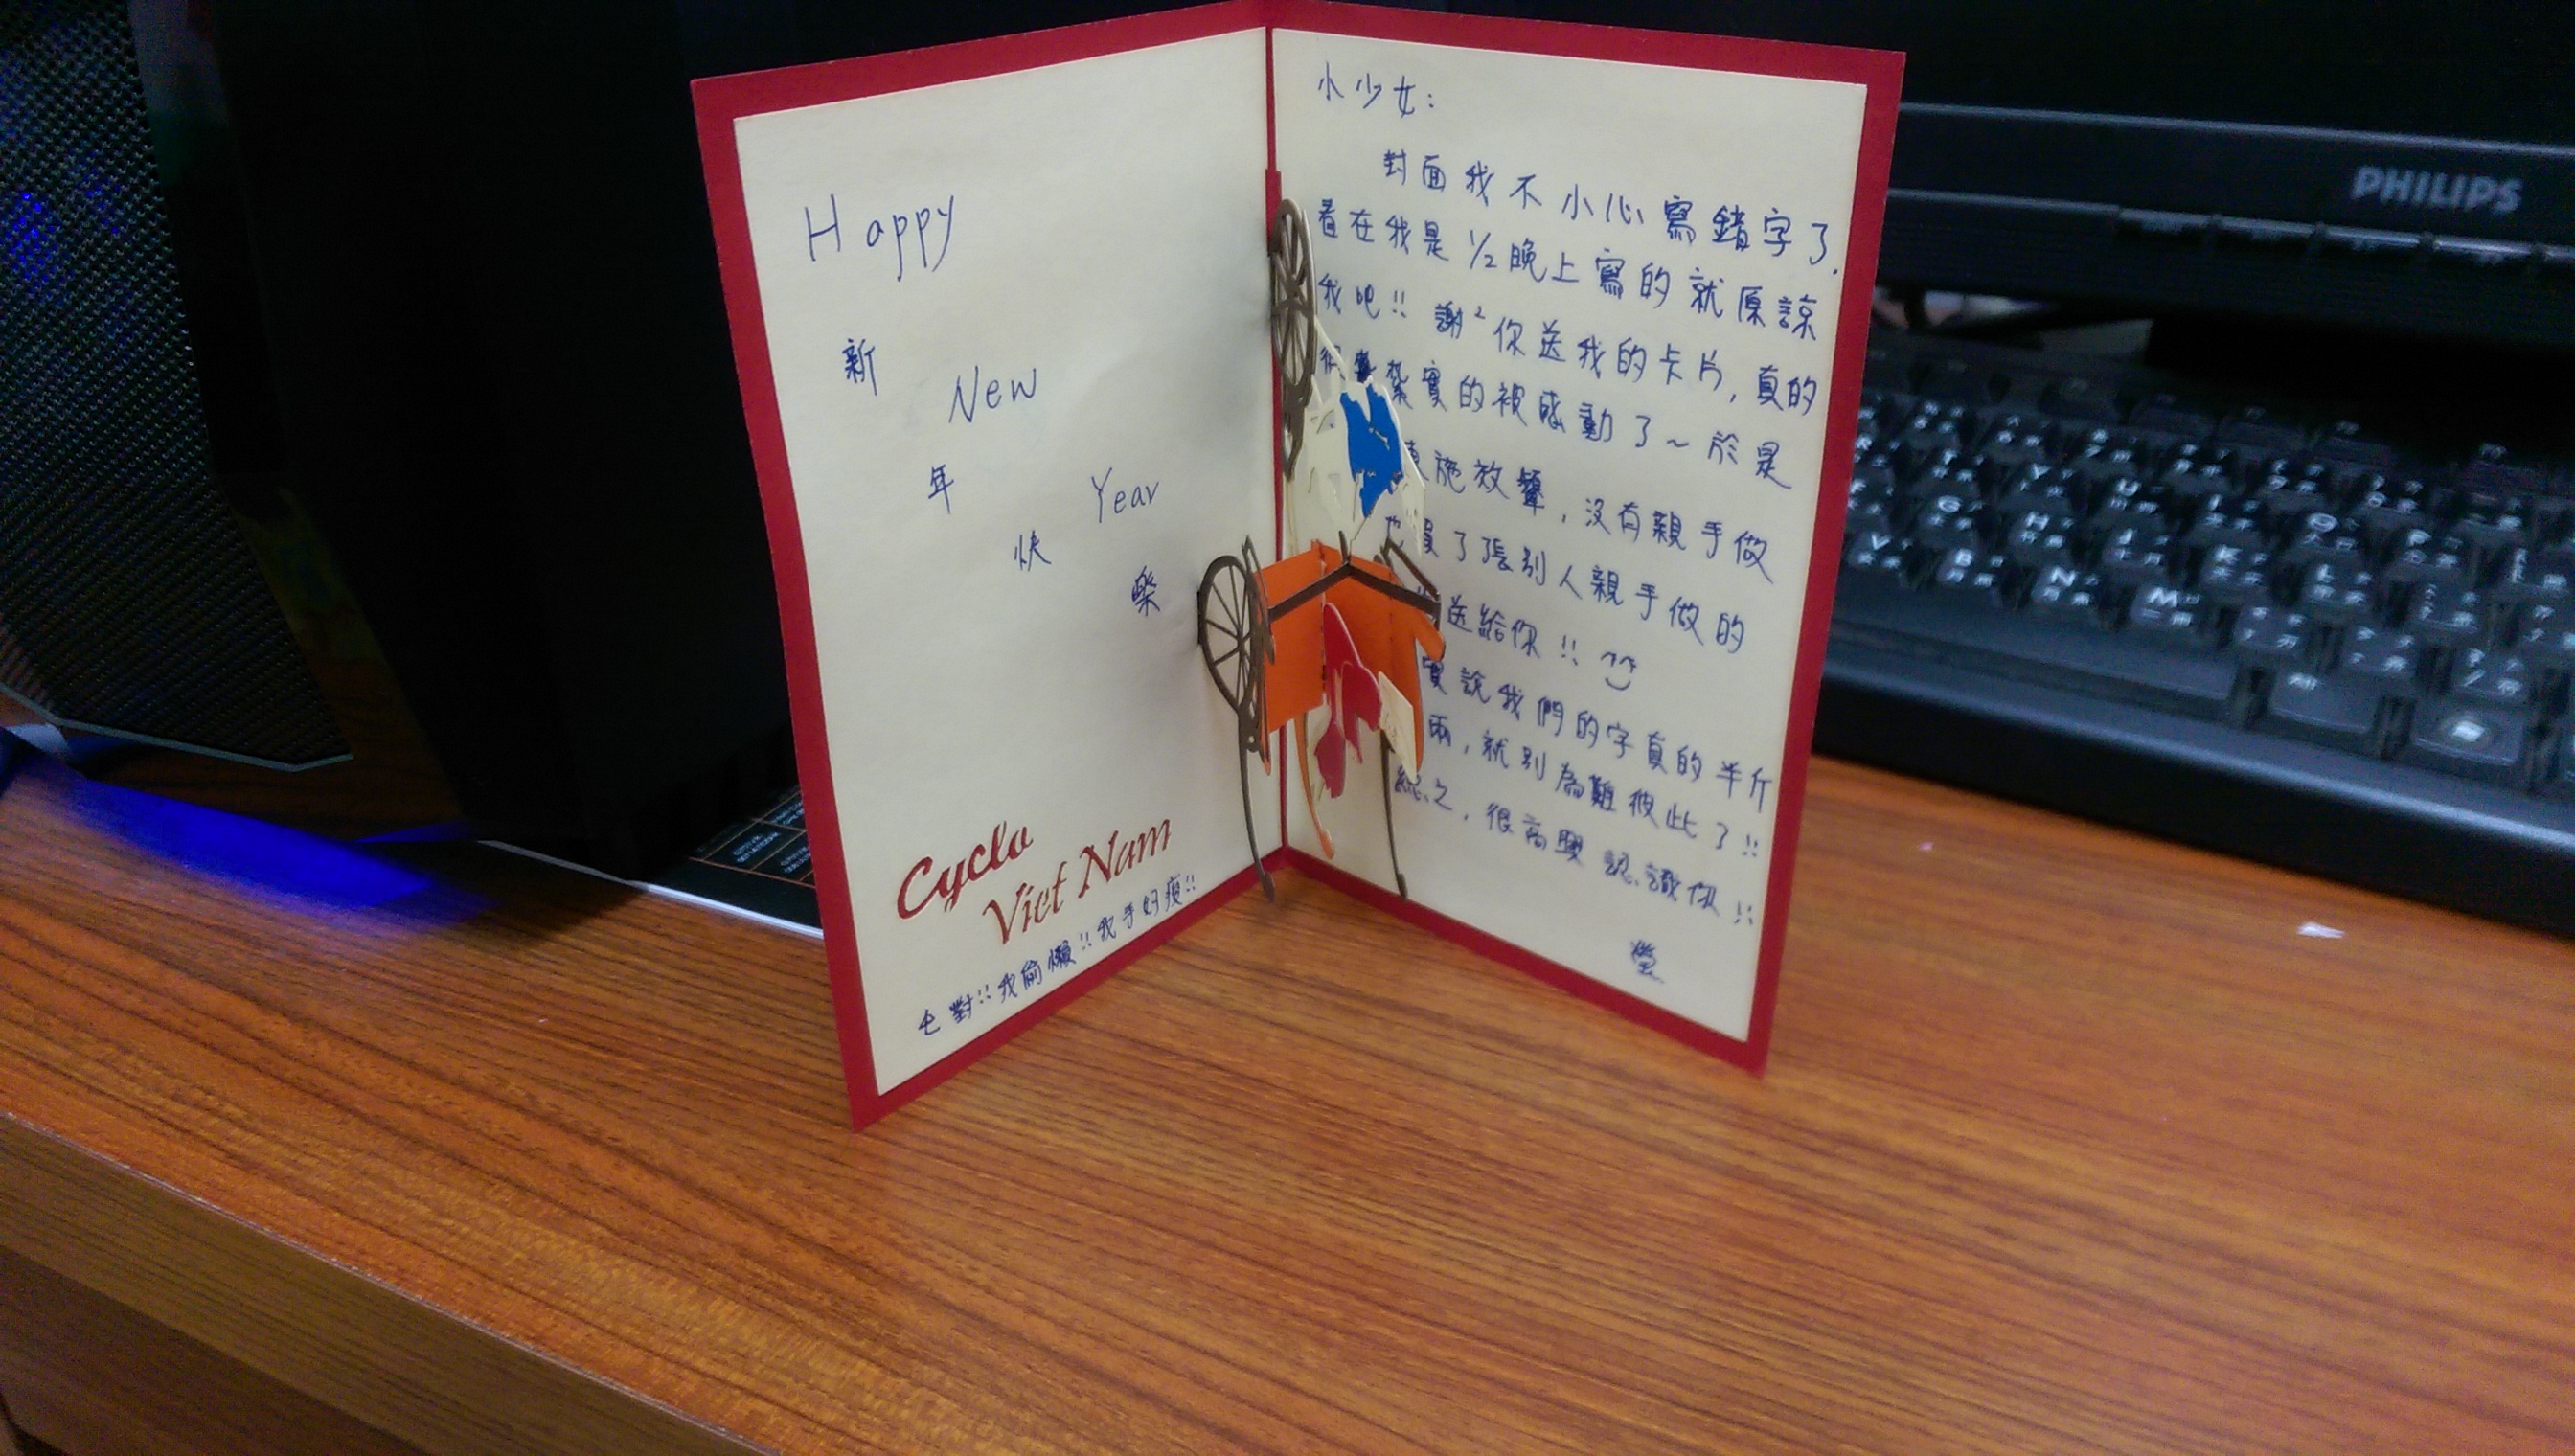 Happy
新
New
年
Year
快
樂
Cyclo
Viet Nam
對!!我偷懶!!我手好痠!!
小少女:
封面我不小心寫錯字了.
看在我是1/2晚上寫的就原諒
我吧!!謝²你送我的卡片,真的
紮實的被感動了~於是
施效顰,沒有親手做
買了張別人親手做的
送給你!!
實說我們的字真的半斤
兩,就別為難彼此了!!
總之,很高興認識你!!
PHILIPS